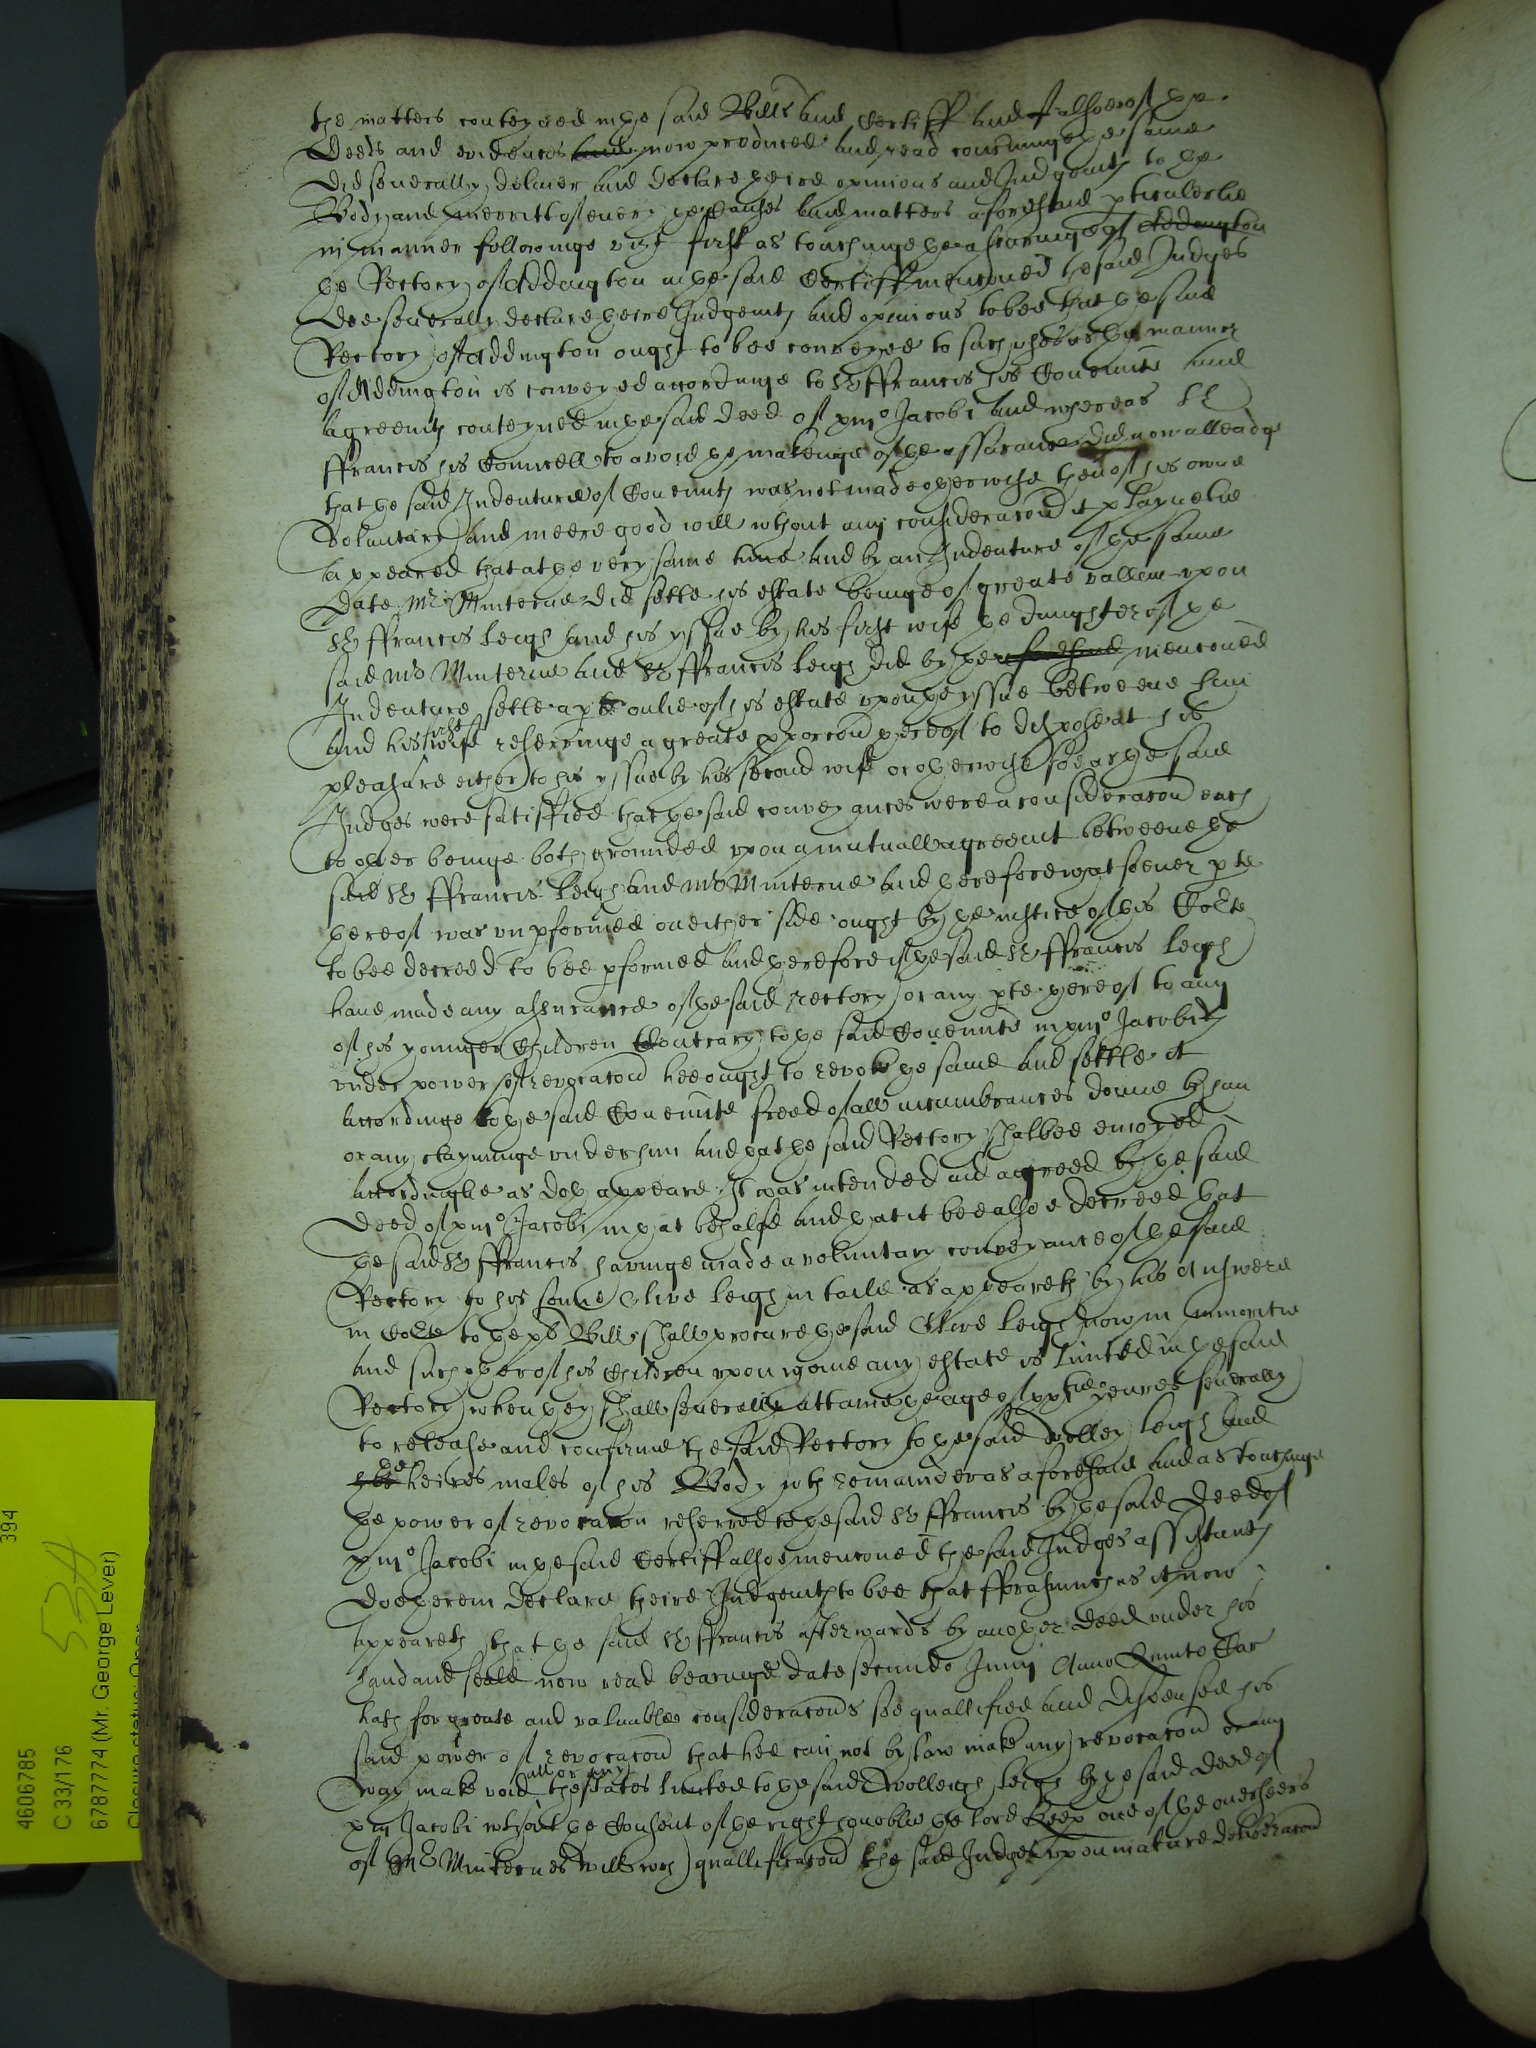 the matters conteyned in ye said Bills and Certiff and allsoe of ye
Deeds and evidences and now produced and read concerninge ye same
did severally deliver and declare yeire opinions and Judgemts to ye
Body and merritt of every ye causes and matters aforesaid pticulerlie
in manner followinge vizt first as touchinge ye assuringe of Addington
ye Rectory of Addington in ye said Certiff mencioned the said Judges
doe severally declare yeire Judgemts and opinions to bee that ye said
Rectory of Addington ought to bee conveyed to such uses as ye mannor
of Addington is conveyed accordinge to Sr ffrancis his Covennte and
agreemts conteyned in ye said deed of pmo Jacobi and whereas Sr
ffrancis his Councell to avoid ye makeinge of ye assurance did now alleadge
that ye said Indenture of Covennts was not made oyerwise then of his owne
voluntary and meere good will wthout any consideracon it playnelie
appeared that at ye very same time and by an Indenture of ye same
date Mr Minterne did settle his estate beinge of greate vallew upon
Sr ffrancis Leigh and his yssue by his first wife ye daughter of ye
said Mr Minterne and Sr ffrancis Leigh did by ye aforesaid mencioned
Indenture settle a pte onlie of his estate upon ye yssue betweene him
and his first wife reserringe a greate pporcon yereof to dispose at his
pleasure either to his yssue by his second wife or oyerwise soe as ye said
Judges were satisffied that ye said conveyances were a consideracon each
to oyer beinge both grounded upon a mutuall agreemt betweene ye
said Sr ffrancis Leigh and Mr Minterne and yerefore wt soever pte
yereof was unpformed on either side ought by ye justice of this Corte
to bee decreed to bee pformed and yerefore if ye said Sr ffrancis Leigh
have made any assurance of ye said rectory or any pte yereof to any
of his younger Children Contrary to ye said Covennte in pmo Jacobi
under power of revocacon hee ought to revoke ye same and settle it
accordinge to ye said Covennte freed of all incumbrances donne by him
or any clayminge under him and yat ye said Rectory shalbee enioyed
accordinglie as doth appeare It was intended and agreed by ye said
deed of pmo Jacobi in yat behalfe and yat it bee alsoe decreed yat
ye said Sr ffrancis havinge made a voluntary conveyance of ye said
Rectory to his sonne Olive Leigh in taile as appeareth by his Answere
in Corte to ye pts Bill shall procure ye said Olive Leigh now in minoritie
and such oyer of his Children upon whome any estate is limited in ye said
Rectory when yey shall severally attaine ye age of xxi yeares severally
to release and confirme the said Rectory to ye said Wolley Leigh and
ye heires males of his Body wth remainder as aforesaid and as touchinge
ye power of revocacon reserved to ye said Sr ffrancis by ye said deed of
pmo Jacobi in ye said Certiff alsoe mencioned the said Judges assistants
doe yerein declare theire Judgemts to bee that fforasmuch as it now
appeareth that ye said Sr ffrancis afterwards by anoyer deed under his
hand and seale now read bearinge date secundo Junij Anno Quinto Car
hath for greate and valuable consideracons soe quallified and dispensed his
said power of revocacon that hee can not by law make any revocacon or any
way make void all or any the estates limited to ye said Wolleigh Leigh by ye said deed of
pmo Jacobi wthout ye Consent of ye right honoble ye lord Keep one of ye overseers
of Mr Minternes Will wch quallificacon the said Judges upon mature deliberacon
394
534
4606785
C 33/176
6787774 (Mr. George Lever)
Closure status: Open